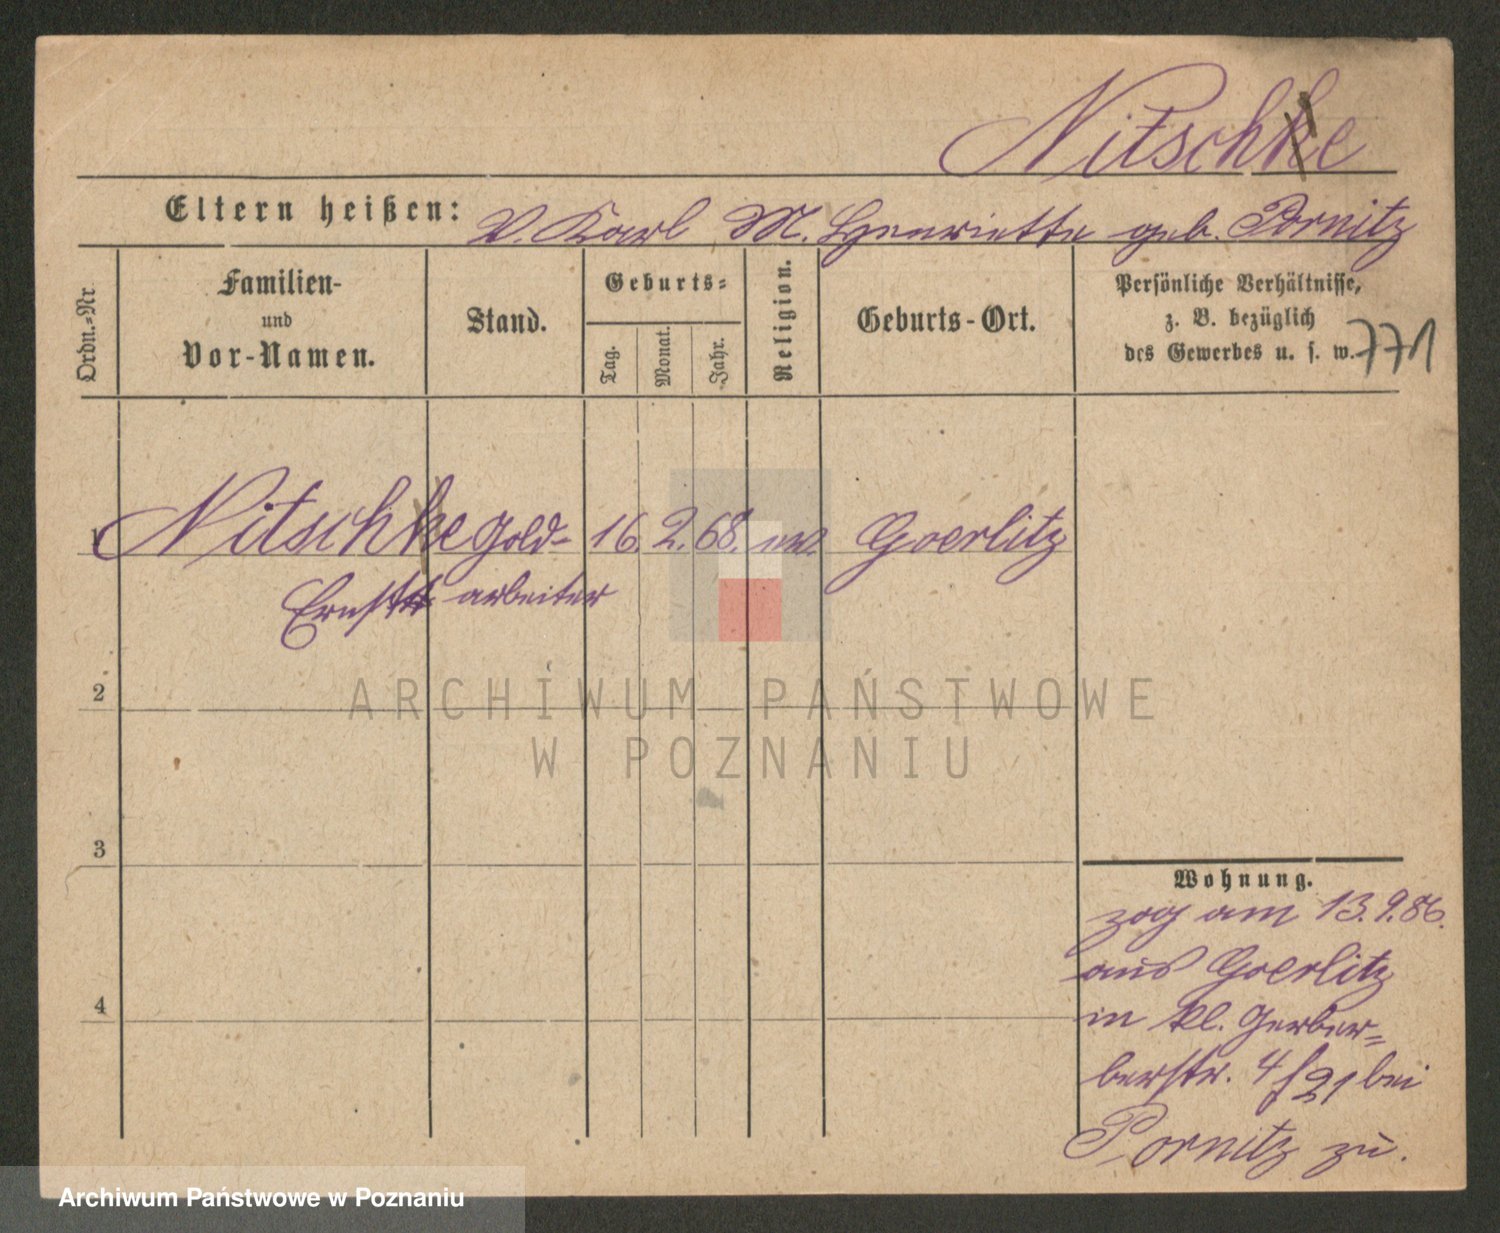 Nitschke
Eltern heißen: V. Karl M. Henriette geb. Pornitz
Ordn.=Nr.
Familien-
und
Vor-Namen.
Stand.
Geburts=
Tag.
Monat.
Jahr.
Religion.
Geburts-Ort.
Persönliche Verhältnisse,
z. B. bezüglich
des Gewerbes u. s. w.
771
1 Nitschke Gold- 16. 2. 68. ev. Goerlitz
Ernst arbeiter
2
ARCHIWUM PAŃSTWOWE
W POZNANIU
3
Wohnung.
zog am 13.9.86.
aus Goerlitz
in kl. Gerber=
4
berstr. 4 bei
Pornitz zu.
Archiwum Państwowe w Poznaniu